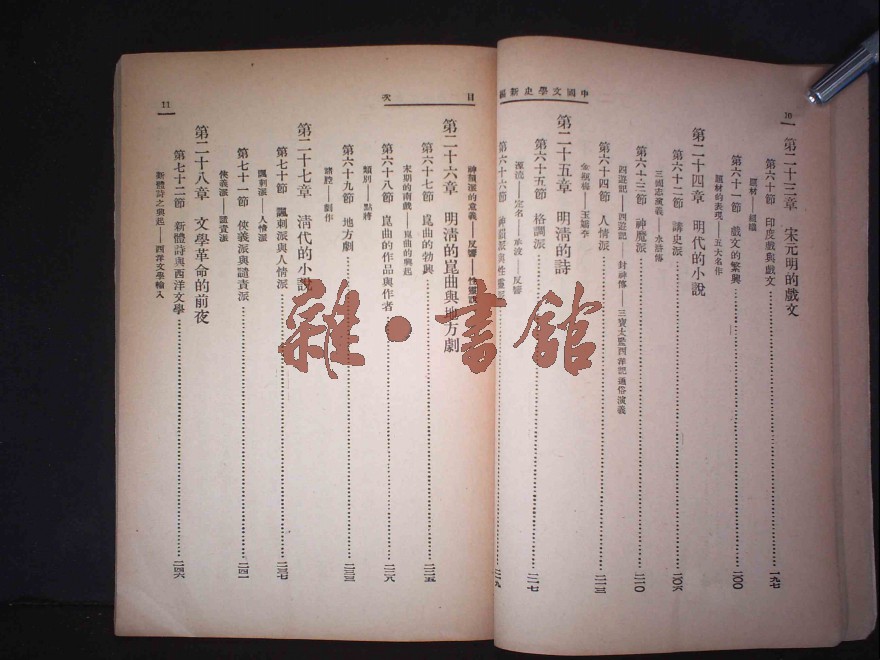 中國文學史新編
10
第二十三章 宋元明的戲文
第六十節 印度戲與戲文………一九七
題材——組織
第六十一節 戲文的繁興………二〇〇
題材的表現——五大名作
第二十四章 明代的小說
第六十二節 講史派………二〇六
三國志演義——水滸傳
第六十三節 神魔派………二一〇
四遊記——西遊記——封神傳——三寶太監西洋記通俗演義
第六十四節 人情派………二一三
金瓶梅——玉嬌李
第二十五章 明清的詩
第六十五節 格調派………二一七
源流——定名——承波——反響
第六十六節 神韻派與性靈派………二一九
目次
11
神韻派的意義——反響——性靈說
第二十六章 明清的崑曲與地方劇
第六十七節 崑曲的勃興………二二五
宋期的南戲——崑曲的興起
第六十八節 崑曲的作品與作者………二二八
類別——點將
第六十九節 地方劇………二三三
諸腔——劇作
第二十七章 清代的小說
第七十節 諷刺派與人情派………二三七
諷刺派——人情派
第七十一節 俠義派與譴責派………二四一
俠義派——譴責派
第二十八章 文學革命的前夜
第七十二節 新體詩與西洋文學………二四六
新體詩之興起——西洋文學輸入
雜·書館